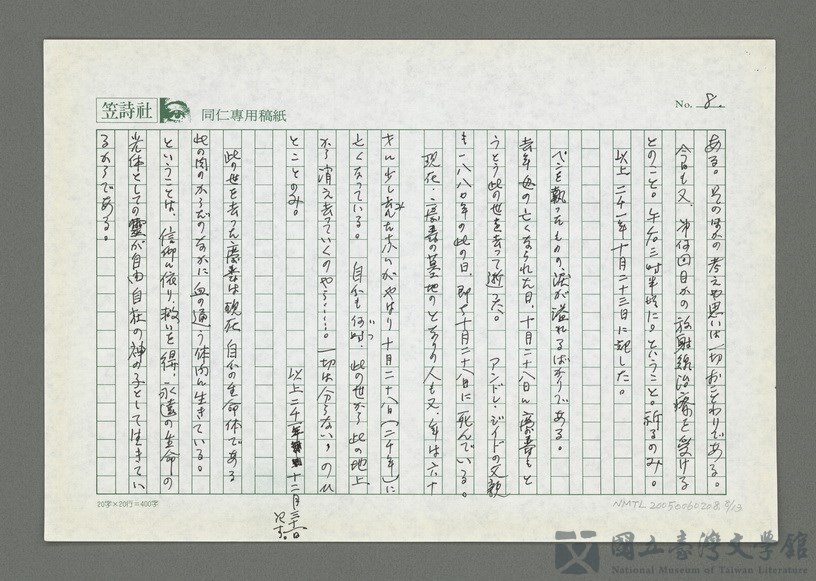 笠詩社
同仁專用稿紙
No. 8.
ある。その外の考えや思いは一切おことわりである。
今日も又、第何回目かの放射線治療を受ける
とのこと。午后三時半時に。ということ。祈るのみ。
以上 二千一年十月二十三日に記した。
ペンを執ったものの、涙が溢れるばかりである。
去年母の亡くなられた日、十月二十八日に
うとう此の世を去って逝った。 アンドレ・ジイドの父親
も一八八〇年の此の日、即ち十月二十八日に死んでいる。
現在、の墓地のとなりの人も又、年は六十
才に少し やはり十月二十八日(二千年)に
亡くなっている。 自分も何時、此の世から此の地上
から消え去っていくのやら……。一切は分らない、のひ
とことのみ。
以上二千一年十二月三十一日
此の世を去った は現在、自分の生命体である
此の肉のからだのなかに血の通う体内に生きている。
ということは、信仰に依り、救いを得、永遠の生命の
光体としての靈が自由自在の神の子として生きてい
るからである。
20字×20行=400字
NMTL20050060208 8/13
國立臺灣文學館
National Museum of Taiwan Literature